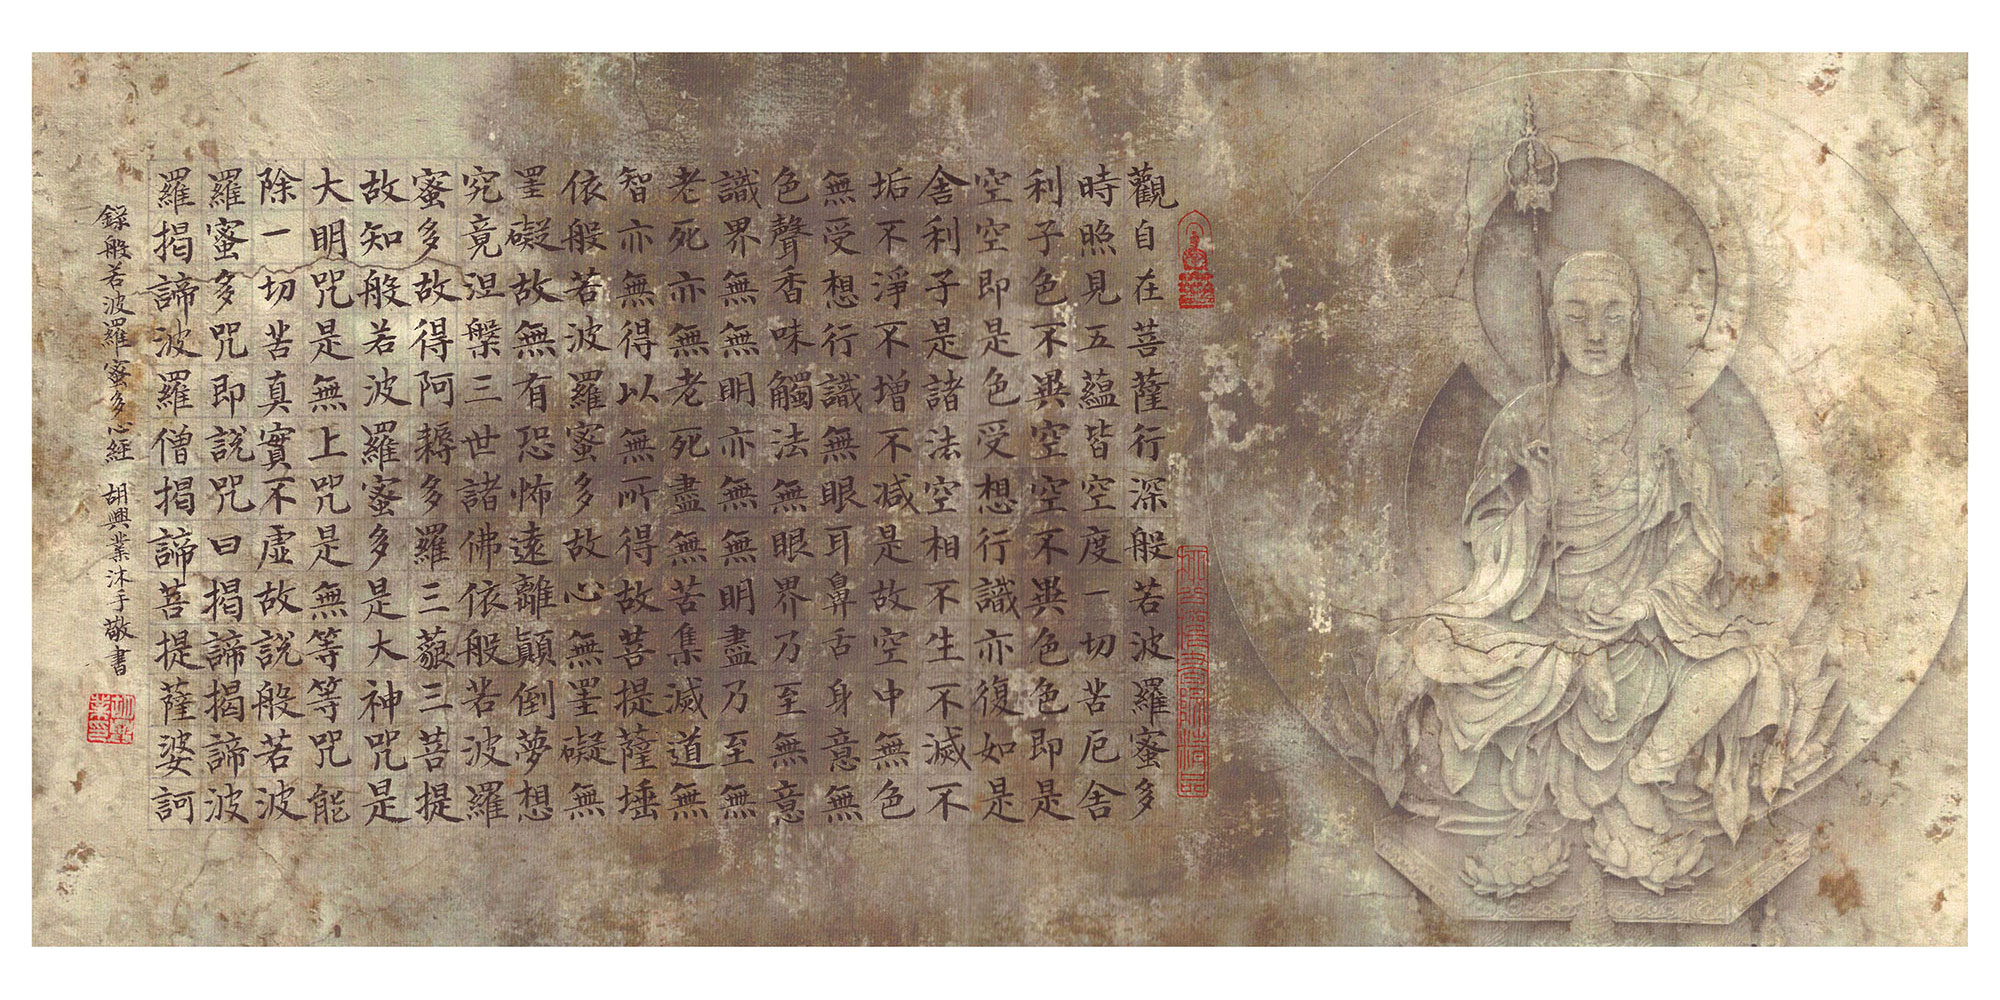 觀自在菩薩行深般若波羅蜜多
時照見五蘊皆空度一切苦厄舍
利子色不異空空不異色色即是
空空即是色受想行識亦復如是
舍利子是諸法空相不生不滅不
垢不淨不增不减是故空中無色
無受想行識無眼耳鼻舌身意無
色聲香味觸法無眼界乃至無意
識界無無明亦無無明盡乃至無
老死亦無老死盡無苦集滅道無
智亦無得以無所得故菩提薩埵
依般若波羅蜜多故心無罣礙無
罣礙故無有恐怖遠離顛倒夢想
究竟涅槃三世諸佛依般若波羅
蜜多故得阿耨多羅三藐三菩提
故知般若波羅蜜多是大神咒是
大明咒是無上咒是無等等咒能
除一切苦真實不虛故說般若波
羅蜜多咒即說咒曰揭諦揭諦波
羅揭諦波羅僧揭諦菩提薩婆訶
錄般若波羅蜜多心經 胡興業沐手敬書